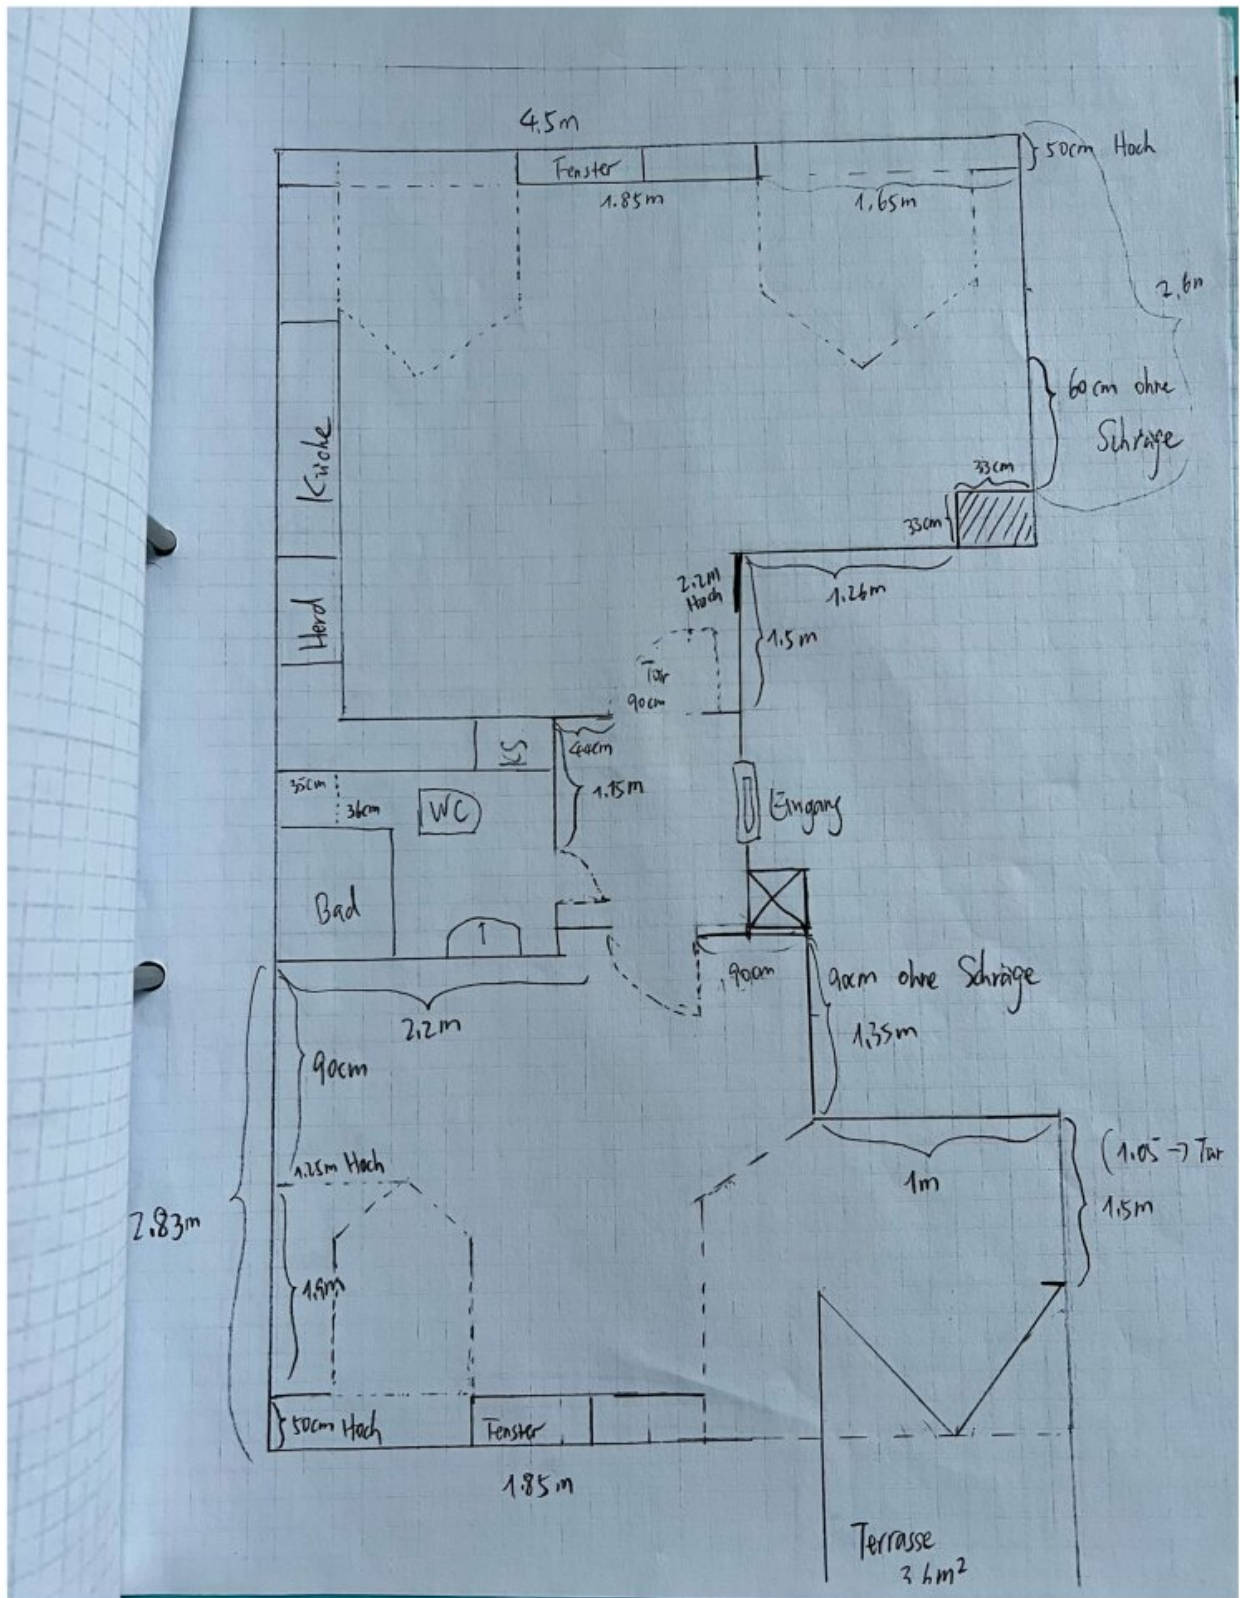 4.5m
50cm Hoch
Fenster
1.85m
1.65m
2,6m
60cm ohne
Schräge
33cm
33cm
Küche
2.2m
Hoch
1.26m
1.5m
Herd
Tür
90cm
KS
44cm
1.15m
35cm
36cm
WC
Eingang
Bad
↑
90cm
90cm ohne Schräge
1,35m
2,2m
90cm
1.25m Hoch
1m
(1.05 → Tür
1.5m
2.83m
50cm Hoch
Fenster
1.85m
Terrasse